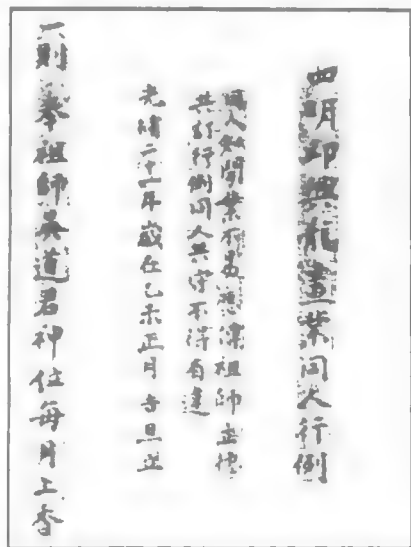 四明邱興龍畫業同人行例
人知開業不易憑深祖師
共訂行例同人共守不得有違
光緒二十一年歲在乙未正月吉旦立
一則奉祖師吳道君神位每月上香